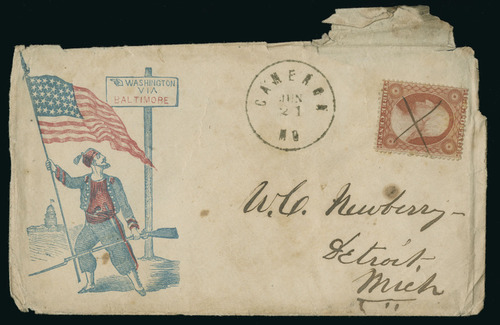 WASHINGTON
VIA
BALTIMORE
CAMERON
JUN
21
MO
W.C. Newberry
Detroit
Mich